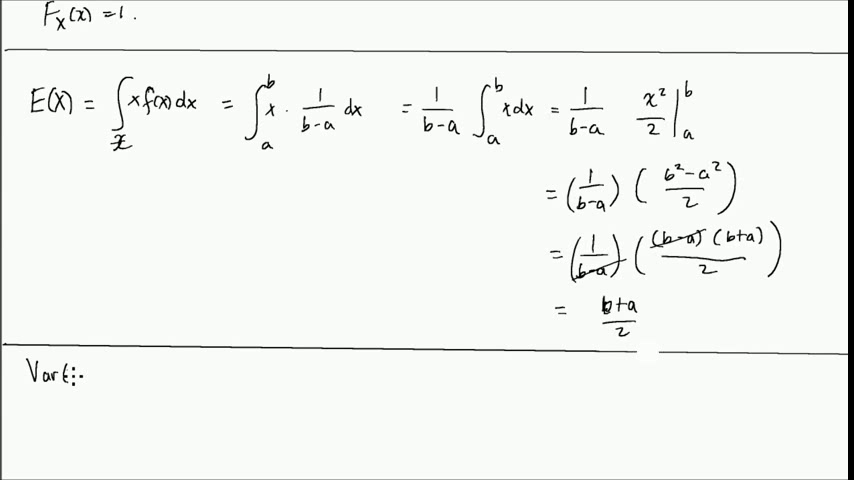 F_X(x) = 1.
E(X) = ∫_𝒳 x f(x) dx = ∫_a^b x · 1/(b-a) dx = 1/(b-a) ∫_a^b x dx = 1/(b-a) x²/2 |_a^b
= (1/(b-a)) ((b²-a²)/2)
= (1/(b-a)) ((b-a)(b+a)/2)
= (b+a)/2
Var(